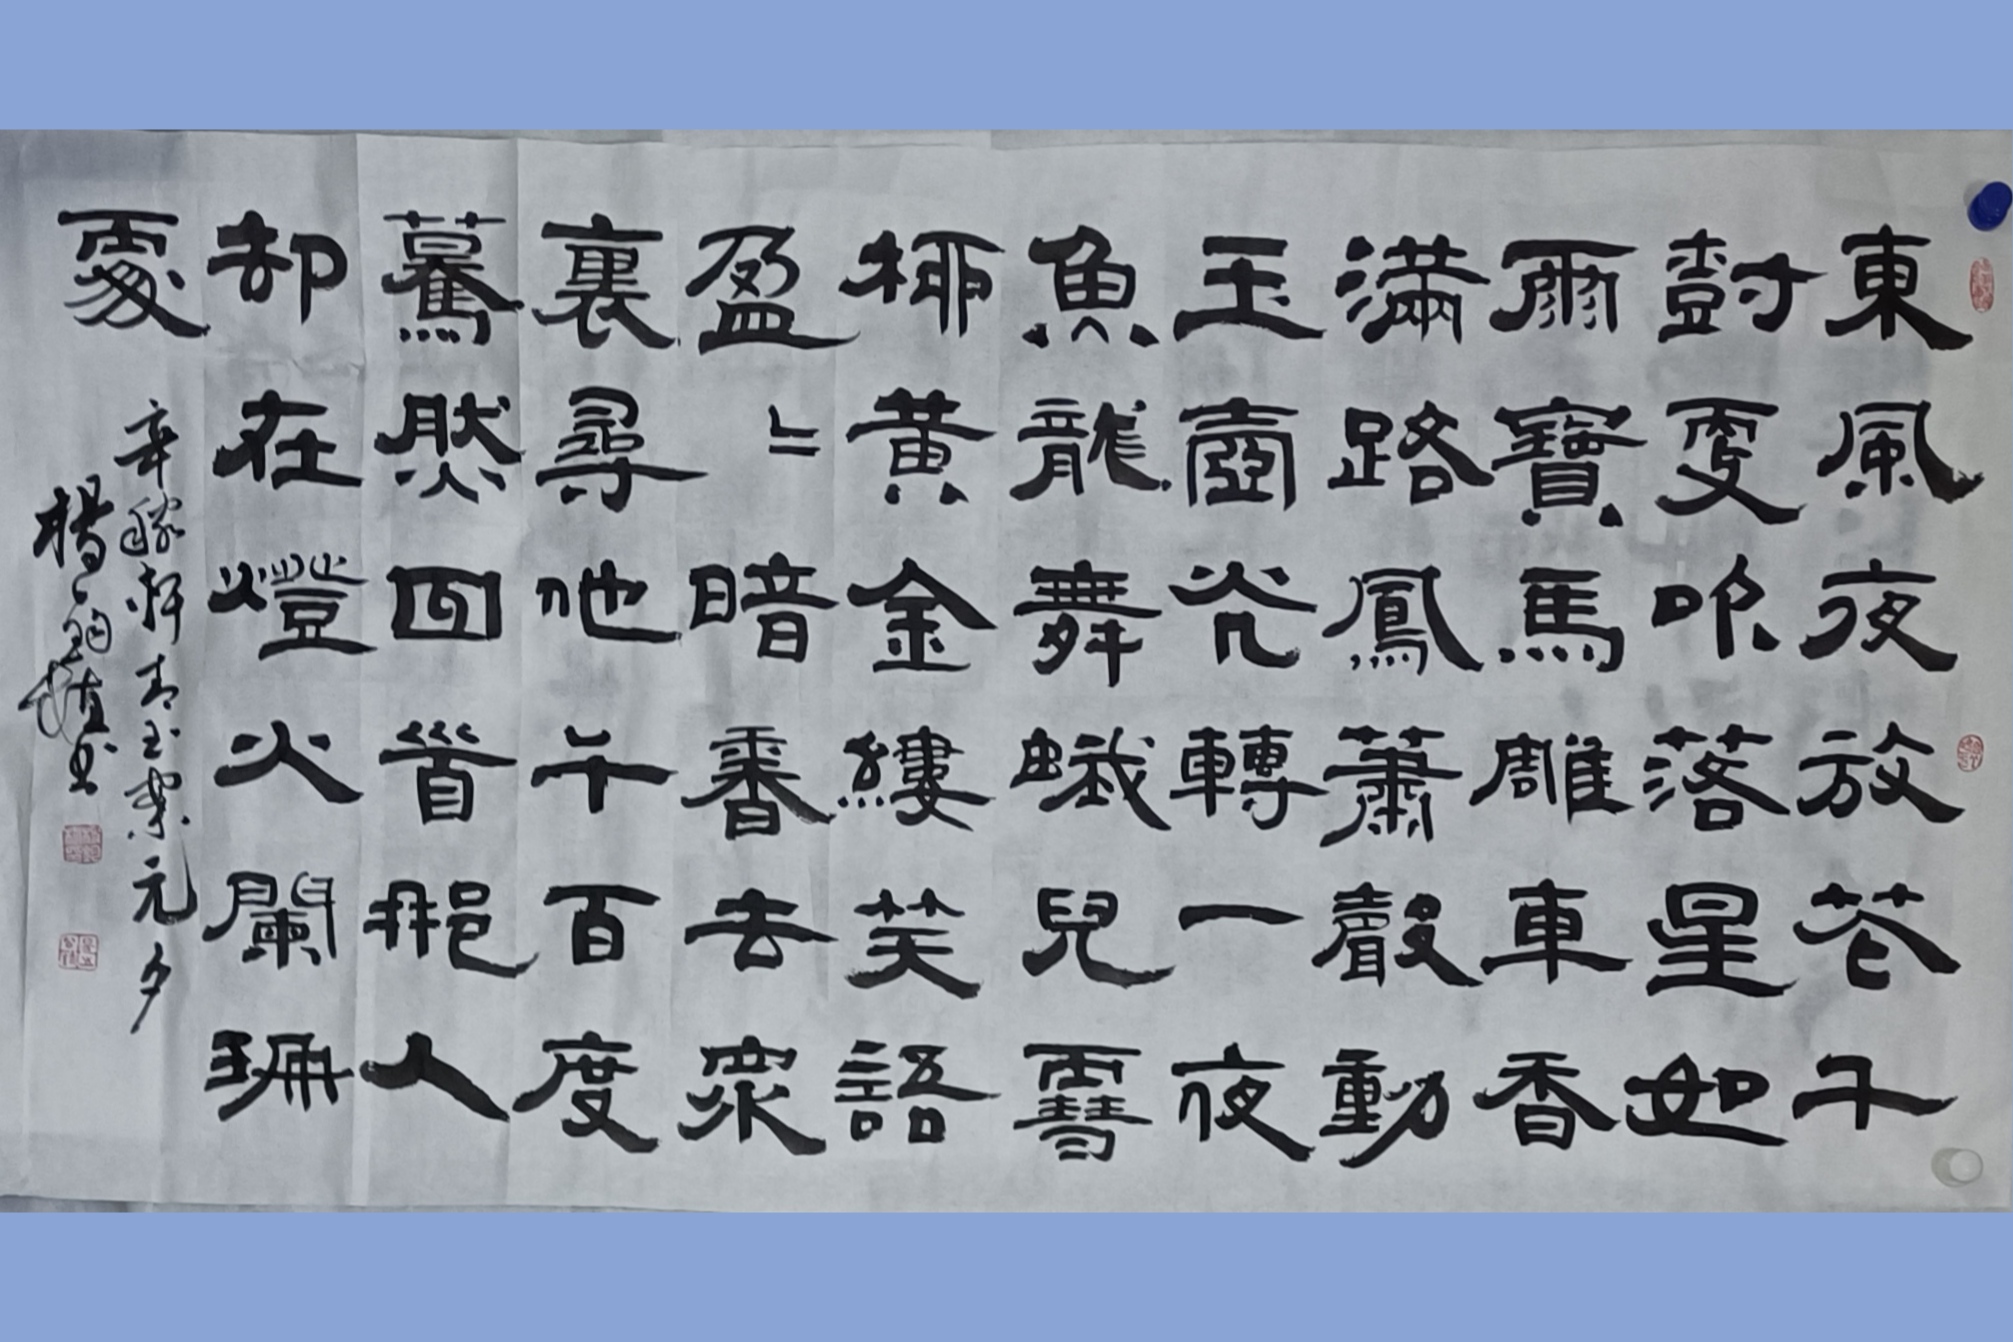 東風夜放花千
樹更吹落星如
雨寶馬雕車香
滿路鳳簫聲動
玉壺光轉一夜
魚龍舞蛾兒雪
柳黃金縷笑語
盈〻暗香去眾
裏尋他千百度
驀然回首那人
却在燈火闌珊
處
辛稼軒青玉案元夕
楊